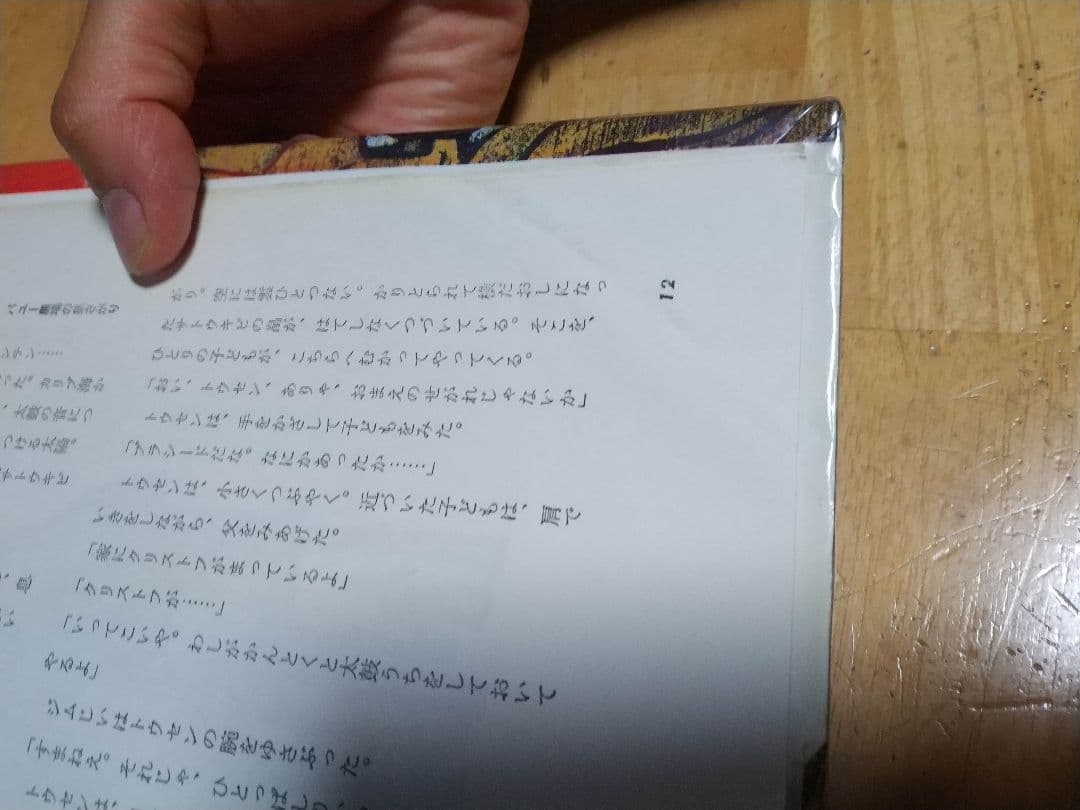 12
かり。空には雲ひとつない。かりとられて横だおしになっ
たサトウキビの畑が、はてしなくつづいている。そこを、
ひとりの子どもが、こちらへむかってやってくる。
「おい、トウセン、ありゃ、おまえのせがれじゃないか」
トウセンは、手をかざして子どもをみた。
「プラシードだな。なにかあったか……」
トウセンは、小さくつぶやく。近づいた子どもは、肩で
いきをしながら、父をみあげた。
「家にクリストフがまっているよ」
「クリストフが……」
「いってこいや。わしがかんとくと太鼓うちをしておいて
やるよ」
ジムじいはトウセンの腕をゆさぶった。
「すまねえ。それじゃ、ひとっぱしり
トウセンは、
農場の昼さがり
ンテン……
った。カリブ海か
、太鼓の音につ
つける太陽。
サトウキビ
、息
い